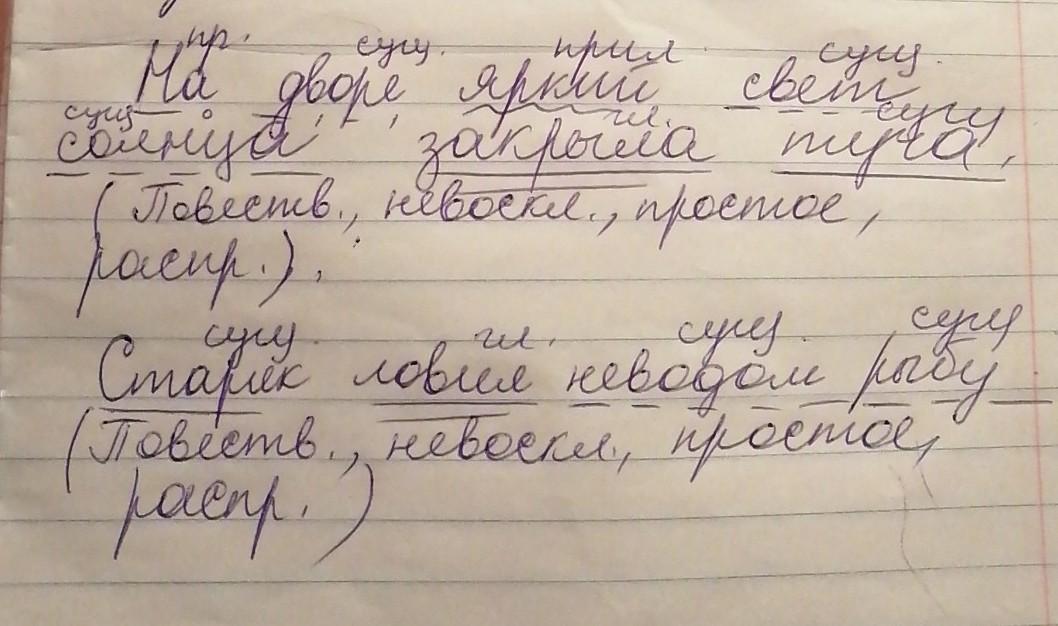 пр. сущ. прил. сущ.
На дворе яркий свет
сущ гл. сущ
солнца закрыла туча.
(Повеств., невоскл., простое,
распр.).
сущ. гл. сущ. сущ
Старик ловил неводом рыбу
(Повеств., невоскл., простое,
распр.)